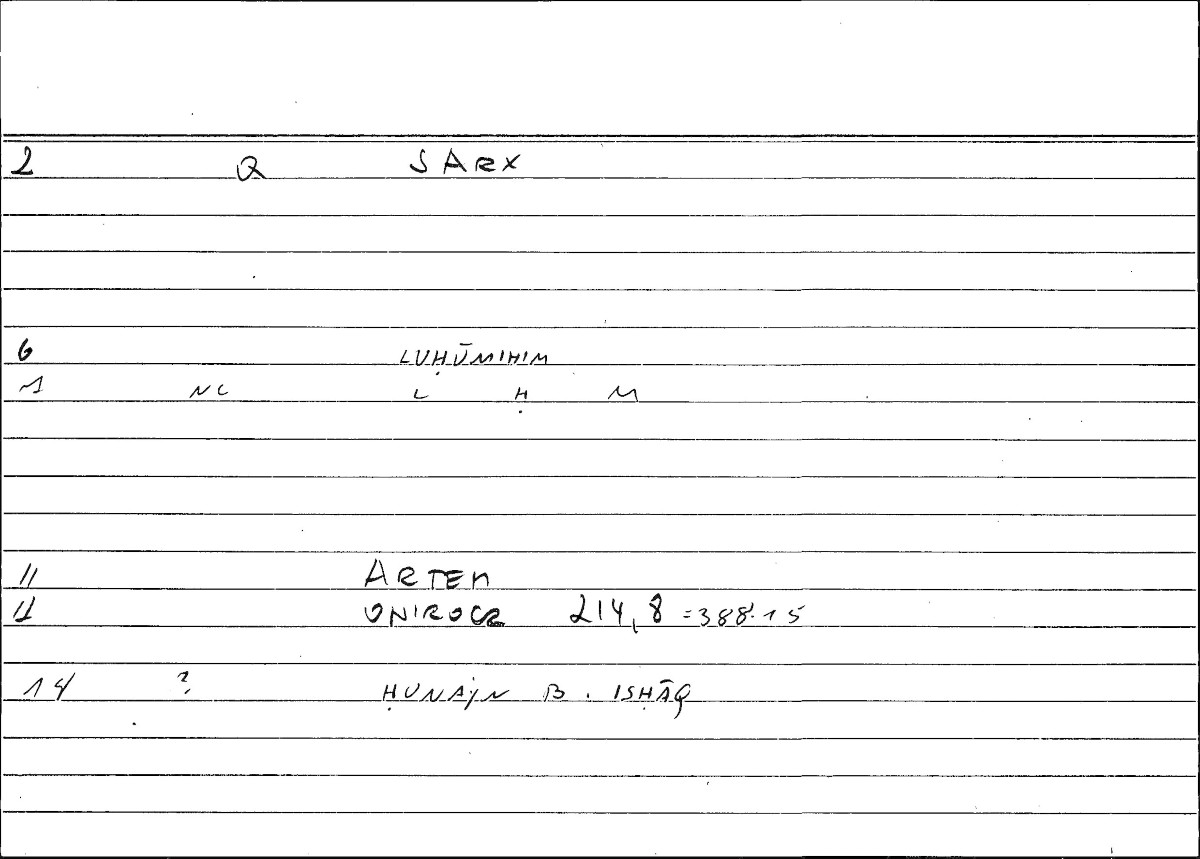 2 Q SARX
6 LUḤŪMIHIM
7 NC L Ḥ M
11 ARTEM
12 ONIROCR 214,8 =388.15
14 ? ḤUNAYN B. ISḤĀQ